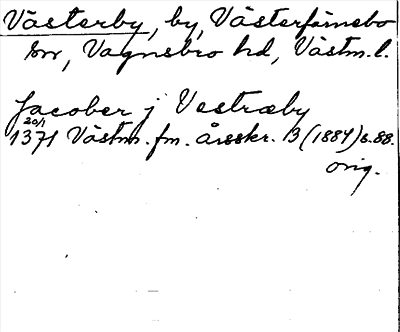 Västerby, by, Västerfärnebo
sn, Vagnsbro hd, Västm. l.
Jacober j Vestræby
20/1
1371 Västm. fm. årsskr. 13 (1884) s. 88.
orig.